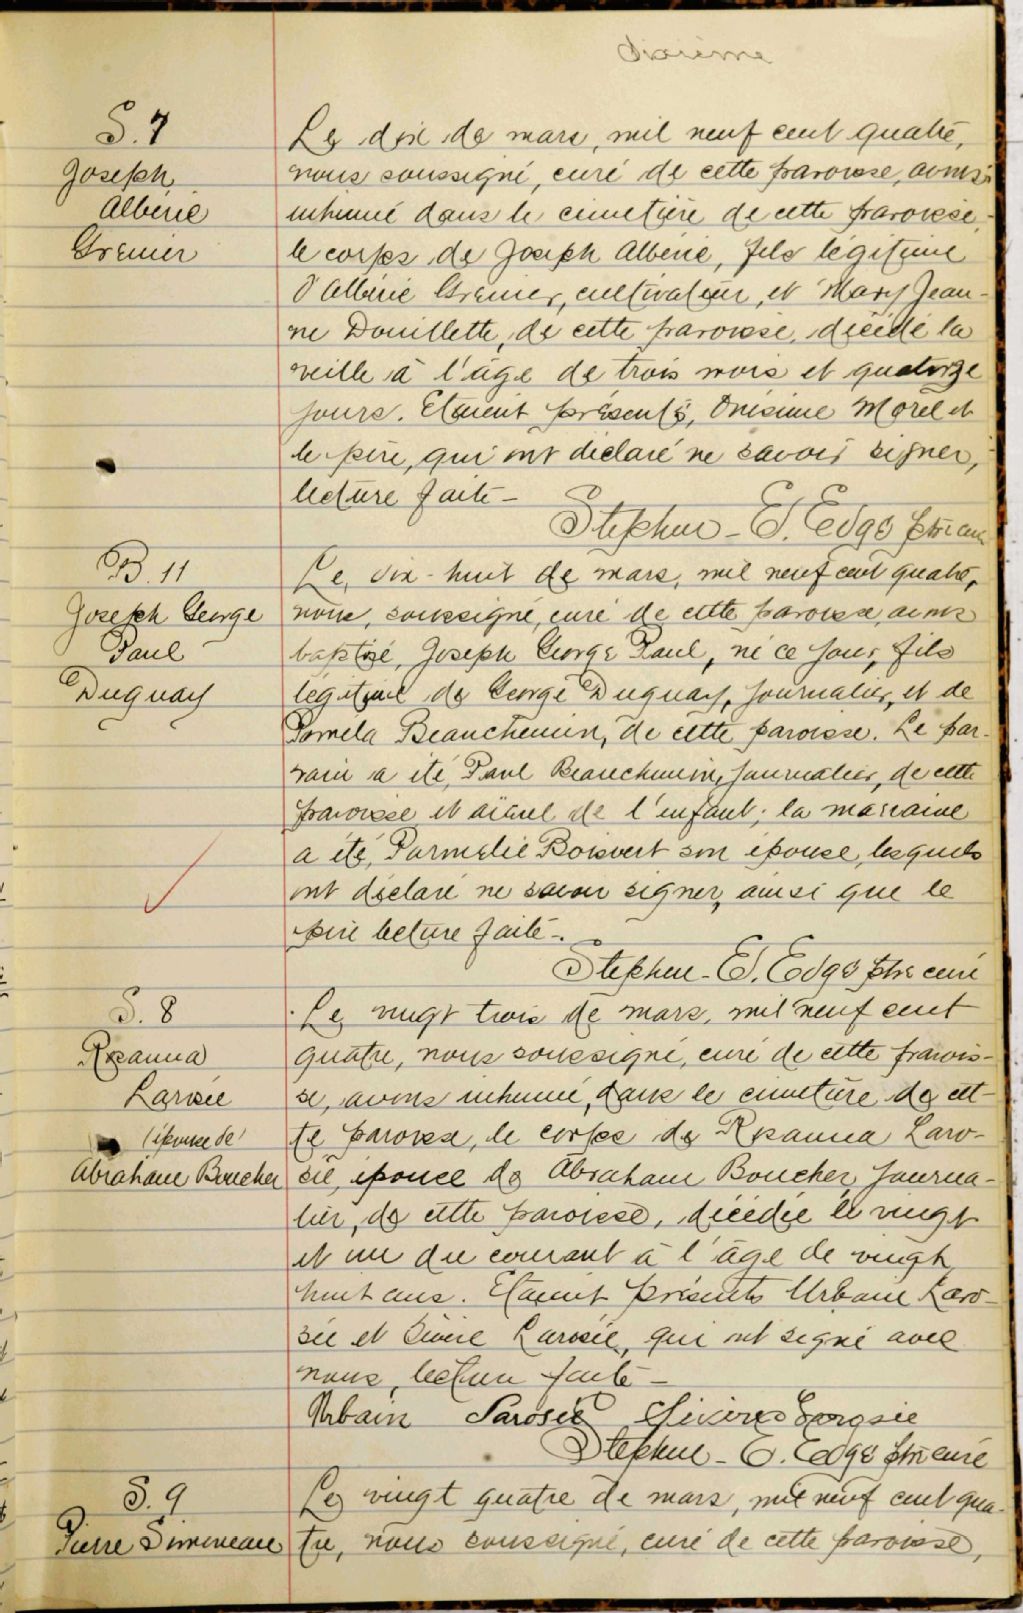 Sixième
S. 7
Joseph
Albéric
Grenier
Le dix de mars, mil neuf cent quatre,
nous soussigné, curé de cette paroisse, avons
inhumé dans le cimetière de cette paroisse,
le corps de Joseph Albéric, fils légitime
d'Albéric Grenier, cultivateur, et Mary Jean-
ne Douillette, de cette paroisse, décédé la
veille à l'âge de trois mois et quatorze
jours. Etaient présents, Onésime Morel et
le père, qui ont déclaré ne savoir signer,
lecture faite -
Stephen - E. Edge ptre curé
B. 11
Joseph George
Paul
Duguay
Le, dix-huit de mars, mil neuf cent quatre,
nous, soussigné, curé de cette paroisse, avons
baptisé, Joseph George Paul, né ce jour, fils
légitime de George Duguay, journalier, et de
Pomela Beauchemin, de cette paroisse. Le par-
rain a été, Paul Beauchemin, journalier, de cette
paroisse et aïeul de l'enfant; la marraine
a été, Parmélie Boisvert son épouse, lesquels
ont déclaré ne savoir signer, ainsi que le
père lecture faite -.
Stephen - E. Edge ptre curé
S. 8
Rosanna
Larosée
(épouse de)
Abraham Boucher
Le, vingt trois de mars, mil neuf cent
quatre, nous soussigné, curé de cette parois-
se, avons inhumé, dans le cimetière de cet-
te paroisse, le corps de Rosanna Laro-
sée, épouse de Abraham Boucher, journa-
lier, de cette paroisse, décédée le vingt
et un du courant à l'âge de vingt
huit ans. Etaient présents Urbain Laro-
sée et Sévère Larosée, qui ont signé avec
nous, lecture faite -
Urbain Larosée Larosée
Stephen - E. Edge ptre curé
S. 9
Pierre Simoneau
Le, vingt quatre de mars, mil neuf cent qua-
tre, nous soussigné, curé de cette paroisse,